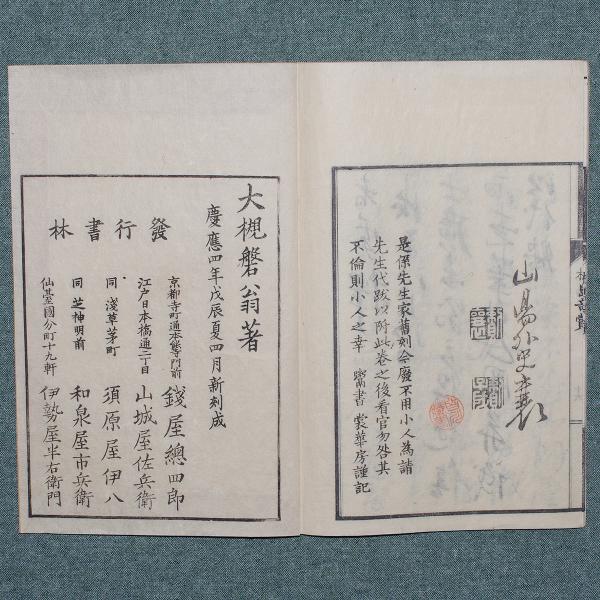 山陽外史襄
是係先生家舊刻今廢不用小人為請
先生代跋以附此卷之後看官勿咎其
不倫則小人之幸 鬻書 裳華房謹記
大槻磐翁著
慶應四年戊辰夏四月新刻成
發行書林
京都寺町通本能寺門前 錢屋總四郎
江戸日本橋通二丁目 山城屋佐兵衛
同 淺草茅町 須原屋伊八
同 芝神明前 和泉屋市兵衛
仙臺國分町十九軒 伊勢屋半右衛門